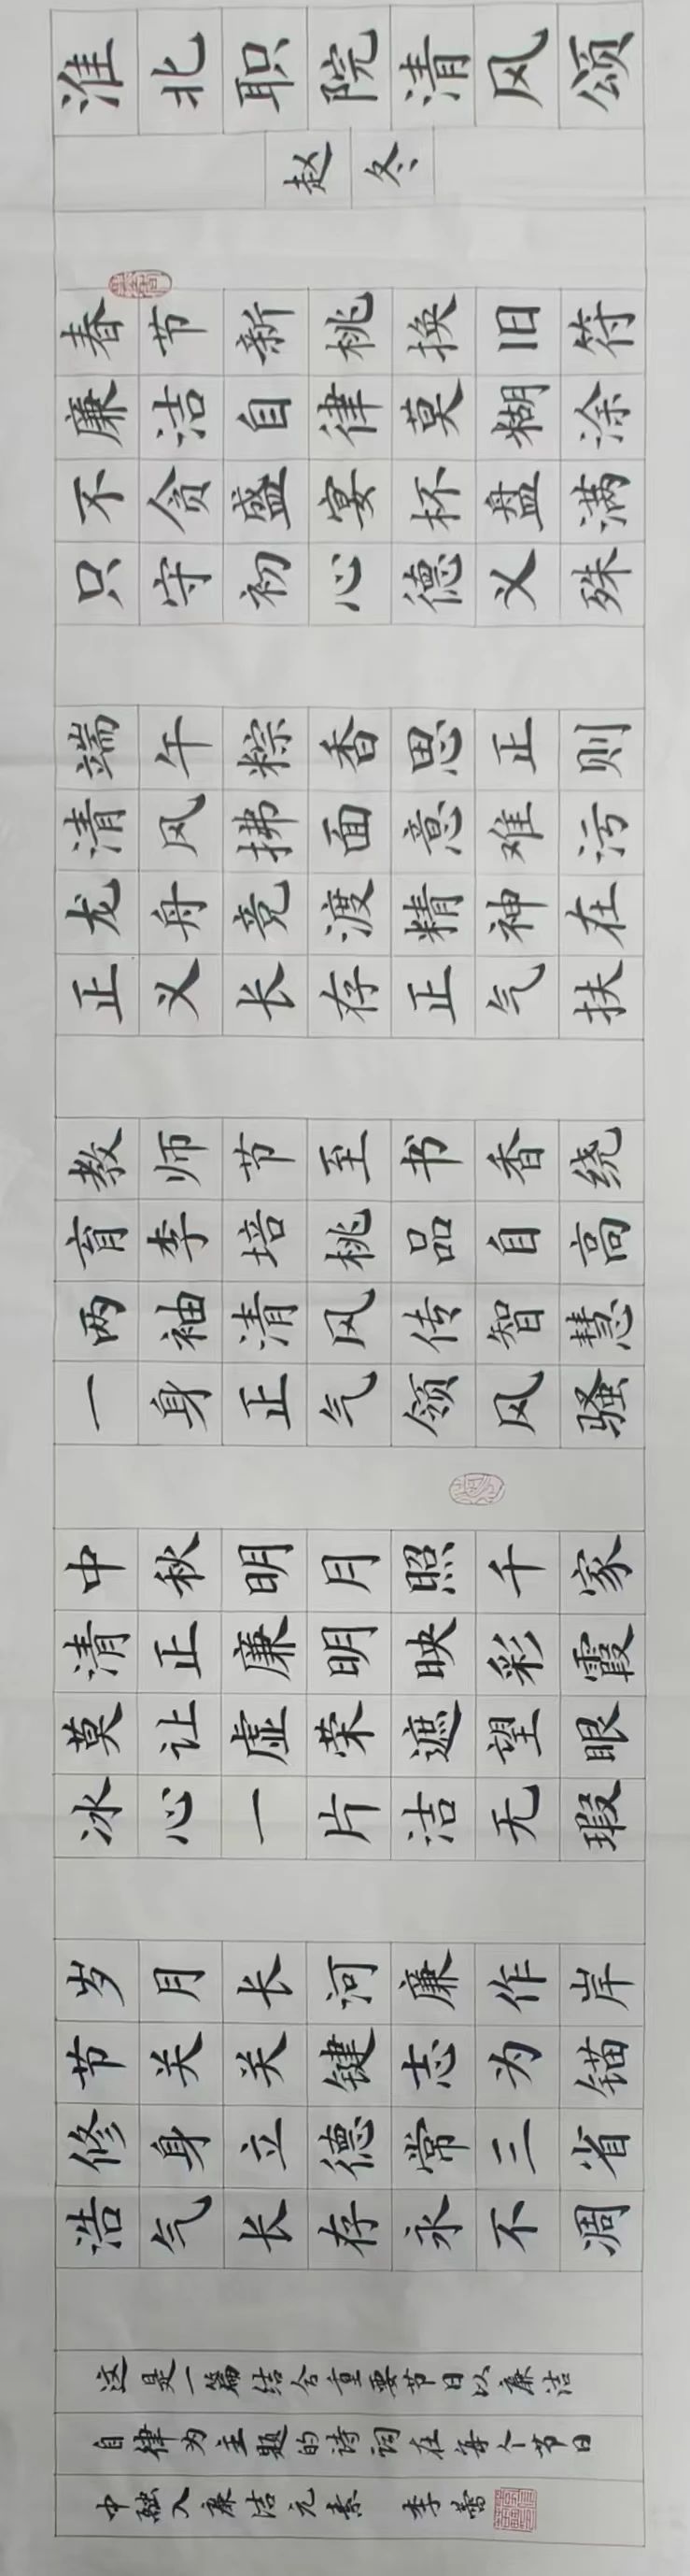 淮北职院清风颂
赵冬
春节新桃换旧符
廉洁自律莫糊涂
不贪盛宴杯盘满
只守初心德义殊
端午粽香思正则
清风拂面意难污
龙舟竞渡精神在
正义长存正气扶
教师节至书香绕
育李培桃品自高
两袖清风传智慧
一身正气领风骚
中秋明月照千家
清正廉明映彩霞
莫让虚荣遮望眼
冰心一片洁无瑕
岁月长河廉作岸
节关关键志为锚
修身立德常三省
浩气长存永不凋
这是一篇结合重要节日以廉洁
自律为主题的诗词在每个节日
中融入廉洁元素 李